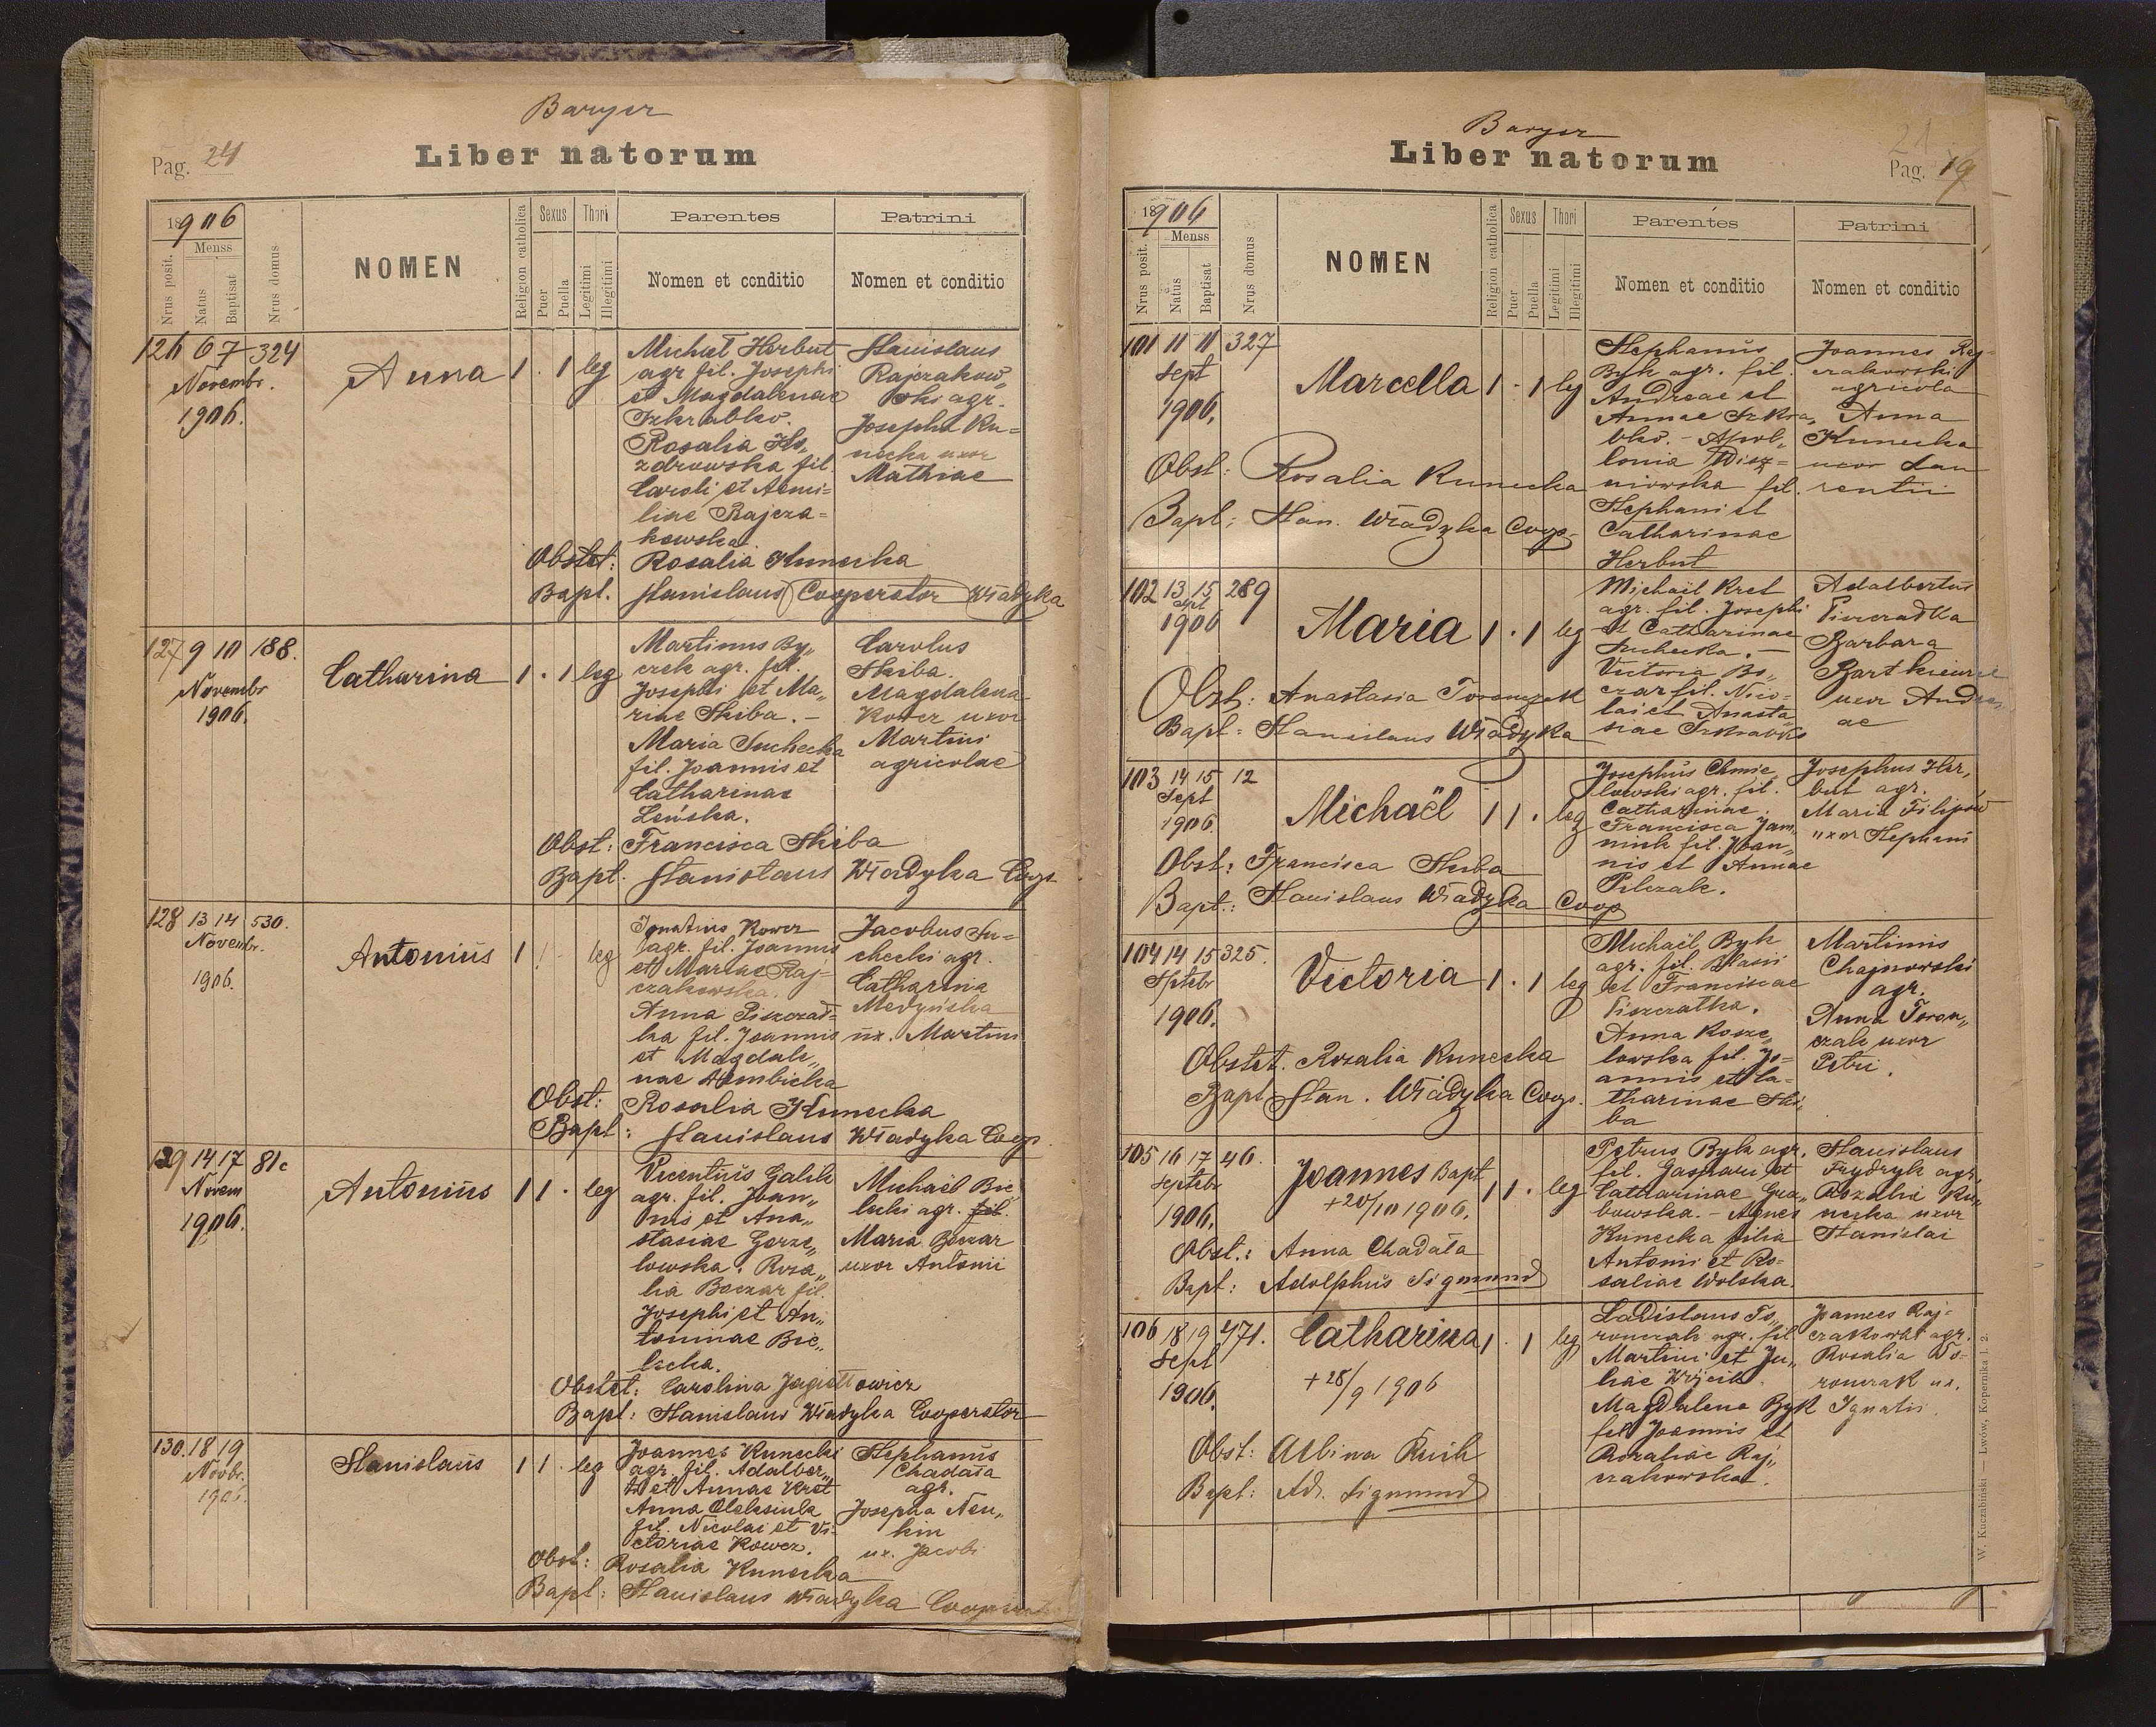 Baryer
Pag. 24
Liber natorum
1906
Nrus posit.
Menss
Natus
Baptisat
Nrus domus
NOMEN
Religion catholica
Sexus
Puer
Puella
Thori
Legitimi
Illegitimi
Parentes
Nomen et conditio
Patrini
Nomen et conditio
126 6 7 324
Novembr.
1906.
Anna
1 . 1 leg
Michael Herbut
agr. fil. Josephi
et Magdalenae
Szkrabko.
Rosalia
zdrowska fil.
Caroli et Aemi=
liae Rajcza=
kowska
Stanislaus
Rajczakow„
ski agr.
Josepha Ku=
necka uxor
Mathiae
Obstet: Rosalia Kunecka
Bapt. Stanislaus Cooperator Władyka
127 9 10 188.
Novembr
1906.
Catharina
1 . 1 leg
Martinus By„
czek agr. fil.
Josephi et Ma„
riae Skiba. –
Maria Suchecka
fil. Joannis et
Catharinae
Leńska.
Carolus
Skiba.
Magdalena
Kowcz uxor
Martini
agricolae
Obst: Francisca Skiba
Bapt. Stanislaus Władyka Coop.
128 13 14 530.
Novembr.
1906.
Antonius
1 1 - leg
Ignatius Kowcz
agr. fil. Joannis
et Mariae Raj-
czakowska.
Anna Piszczad=
ka fil. Joannis
et Magdale„
nae Dembicka
Jacobus Su=
checki agr.
Catharina
Medyńska
ux. Martini
Obst: Rosalia Kunecka
Bapt: Stanislaus Władyka Coop.
129 14 17 81c
Novem
1906.
Antonius
1 1 . leg
Vicentius Galik
agr. fil. Joan„
nis et Ana„
stasiae Gorze„
lowska. Rosa„
lia Boczar fil.
Josephi et An„
toninae Bie„
lecka.
Michaël Bie„
lecki agr. fil.
Maria Boczar
uxor Antonii
Obstet: Carolina Jagiełłowicz
Bapt: Stanislaus Władyka Cooperator
130. 18 19
Novbr.
1906.
Stanislaus
1 1 . leg
Joannes Kunecki
agr. fil. Adalber„
ti et Annae Kret
Anna Oleksiuka
fil. Nicolai et Vi-
ctoriae Kowcz.
Stephanus
Chadała
agr.
Josepha Neu„
kin
ux. Jacobi
Obst: Rosalia Kunecka
Bapt: Stanislaus Władyka Cooperator
Baryer
Liber natorum
21
Pag. 19
1906
Nrus posit.
Menss
Natus
Baptisat
Nrus domus
NOMEN
Religion catholica
Sexus
Puer
Puella
Thori
Legitimi
Illegitimi
Parentes
Nomen et conditio
Patrini
Nomen et conditio
101 11 11 327
Sept
1906.
Marcella
1 . 1 leg
Stephanus
Byk agr. fil.
Andreae et
Annae Szkra„
bko. – Apol„
lonia Wisz=
niowska fil.
Stephani et
Catharinae
Herbut
Joannes Raj-
czakowski
agricola
Anna
Kunecka
uxor Lau
rentii
Obst: Rosalia Kunecka
Bapt: Stan. Władyka Coop.
102 13 15 289
Sept
1906
Maria
1 . 1 leg
Michaël Kret
agr. fil. Josephi
et Catharinae
Suchecka. –
Victoria Bo„
czar fil. Nico„
lai et Anasta
siae Szkrabko
Adalbertus
Piszczadka
Barbara
uxor Andre„
ae
Obst: Anastasia Toronczak
Bapt: Stanislaus Władyka
103 14 15 12
Sept
1906.
Michaël
1 1 . leg
Josephus Chmie„
lowski agr. fil.
Catharinae.
Francisca Jam„
niuk fil. Joan„
nis et Annae
Pilczak.
Josephus Her„
but agr.
Maria Filipów
uxor Stephani
Obst: Francisca Skiba
Bapt.: Stanislaus Władyka Coop
104 14 15 325.
Septbr
1906.
Victoria
1 . 1 leg
Michaël Byk
agr. fil. Blasii
et Franciscae
Piszczatka.
Anna Kosze„
lowska fil. Jo=
annis et Ca-
tharinae Ski„
ba
Martinus
Chajnowski
agr.
Anna Toron„
czak uxor
Petri.
Obstet. Rosalia Kunecka
Bapt Stan. Władyka Coop.
105 16 17 46.
Septebr
1906.
Joannes Bapt
+20/10 1906.
1 1 . leg
Petrus Byk agr.
fil. Gaspari et
Catharinae Gra„
bowska. – Agnes
Kunecka filia
Antonii et Ro-
saliae Wolska.
Stanislaus
Frydryk agr.
Rozalia Ku„
necka uxor
Stanislai
Obst.: Anna Chadała
Bapt: Adolphus Sigmund
106 18 19 471.
Sept
1906.
Catharina
+28/9 1906
1 . 1 leg
Ladislaus To„
ronczak agr. fil
Martini et Ju„
liae Wójcik.
Magdalena Byk
fil Joannis et
Rozaliae Raj„
czakowska.
Joannes Raj-
czakowski agr.
Rosalia To-
ronczak ux.
Ignatii.
Obst: Albina Ruik
Bapt: Ad. Sigmund
W. Kuczabiński — Lwów, Kopernika l. 2.